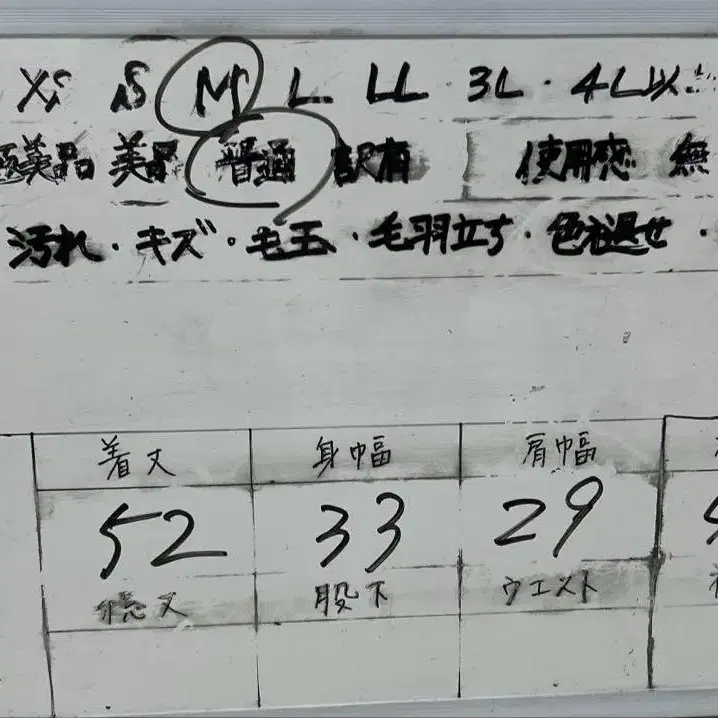 XS S M L LL 3L・4L以
極美品 美品 普通 訳有 使用感 無
汚れ・キズ・毛玉・毛羽立ち・色褪せ・
着丈 身幅 肩幅
52 33 29
総丈 股下 ウエスト